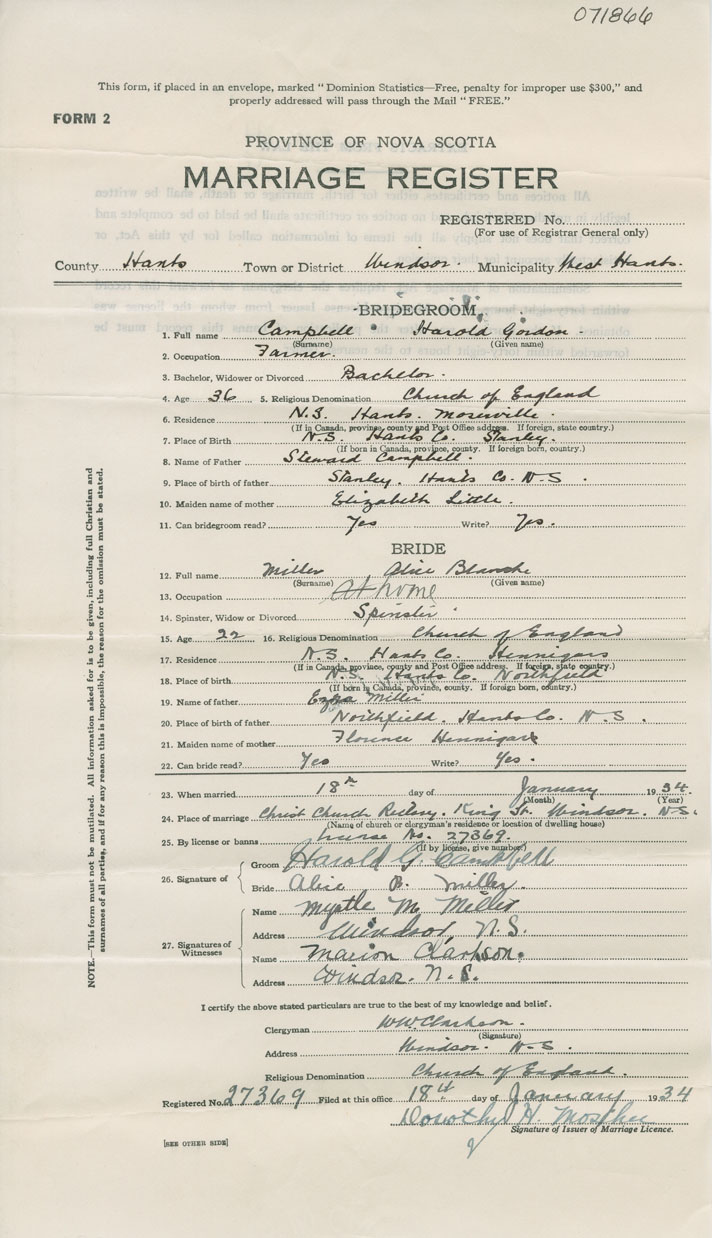 071866
This form, if placed in an envelope, marked "Dominion Statistics—Free, penalty for improper use $300," and
properly addressed will pass through the Mail "FREE."
FORM 2
PROVINCE OF NOVA SCOTIA
MARRIAGE REGISTER
REGISTERED No.
(For use of Registrar General only)
County Hants Town or District Windsor. Municipality West Hants.
BRIDEGROOM
1. Full name Campbell Harold Gordon
(Surname) (Given name)
2. Occupation Farmer.
3. Bachelor, Widower or Divorced Bachelor.
4. Age 36 5. Religious Denomination Church of England
6. Residence N.S. Hants. Mosherville.
(If in Canada, province, county and Post Office address. If foreign, state country.)
7. Place of Birth N.S. Hants Co. Stanley.
(If born in Canada, province, county. If foreign born, country.)
8. Name of Father Steward Campbell.
9. Place of birth of father Stanley. Hants Co. N-S.
10. Maiden name of mother Elizabeth Little.
11. Can bridegroom read? Yes Write? Yes.
BRIDE
12. Full name Miller Alice Blanche
(Surname) (Given name)
13. Occupation At home
14. Spinster, Widow or Divorced Spinster
15. Age 22 16. Religious Denomination Church of England
17. Residence N.S. Hants Co. Hennigars
(If in Canada, province, county and Post Office address. If foreign, state country.)
18. Place of birth N.S. Hants Co. Northfield
(If born in Canada, province, county. If foreign born, country.)
19. Name of father Ezra Miller.
20. Place of birth of father Northfield. Hants Co. N-S.
21. Maiden name of mother Florence Hennigars
22. Can bride read? Yes Write? Yes.
23. When married 18th day of January 1934.
(Month) (Year)
24. Place of marriage Christ Church Rectory. King St. Windsor. N-S.
(Name of church or clergyman's residence or location of dwelling house)
25. By license or banns license No. 27369.
(If by license, give number)
26. Signature of Groom Harold G. Campbell
Bride Alice B. Miller.
27. Signatures of Witnesses Name Myrtle M. Miller
Address Windsor, N.S.
Name Marion Clarkson.
Address Windsor. N.S.
I certify the above stated particulars are true to the best of my knowledge and belief.
Clergyman WW Clarkson.
(Signature)
Address Windsor. N-S.
Religious Denomination Church of England.
Registered No. 27369 Filed at this office 18th day of January 1934
Dorothy H. Mosher
Signature of Issuer of Marriage Licence.
[SEE OTHER SIDE]
NOTE.—This form must not be mutilated. All information asked for is to be given, including full Christian and
surnames of all parties, and if for any reason this is impossible, the reason for the omission must be stated.